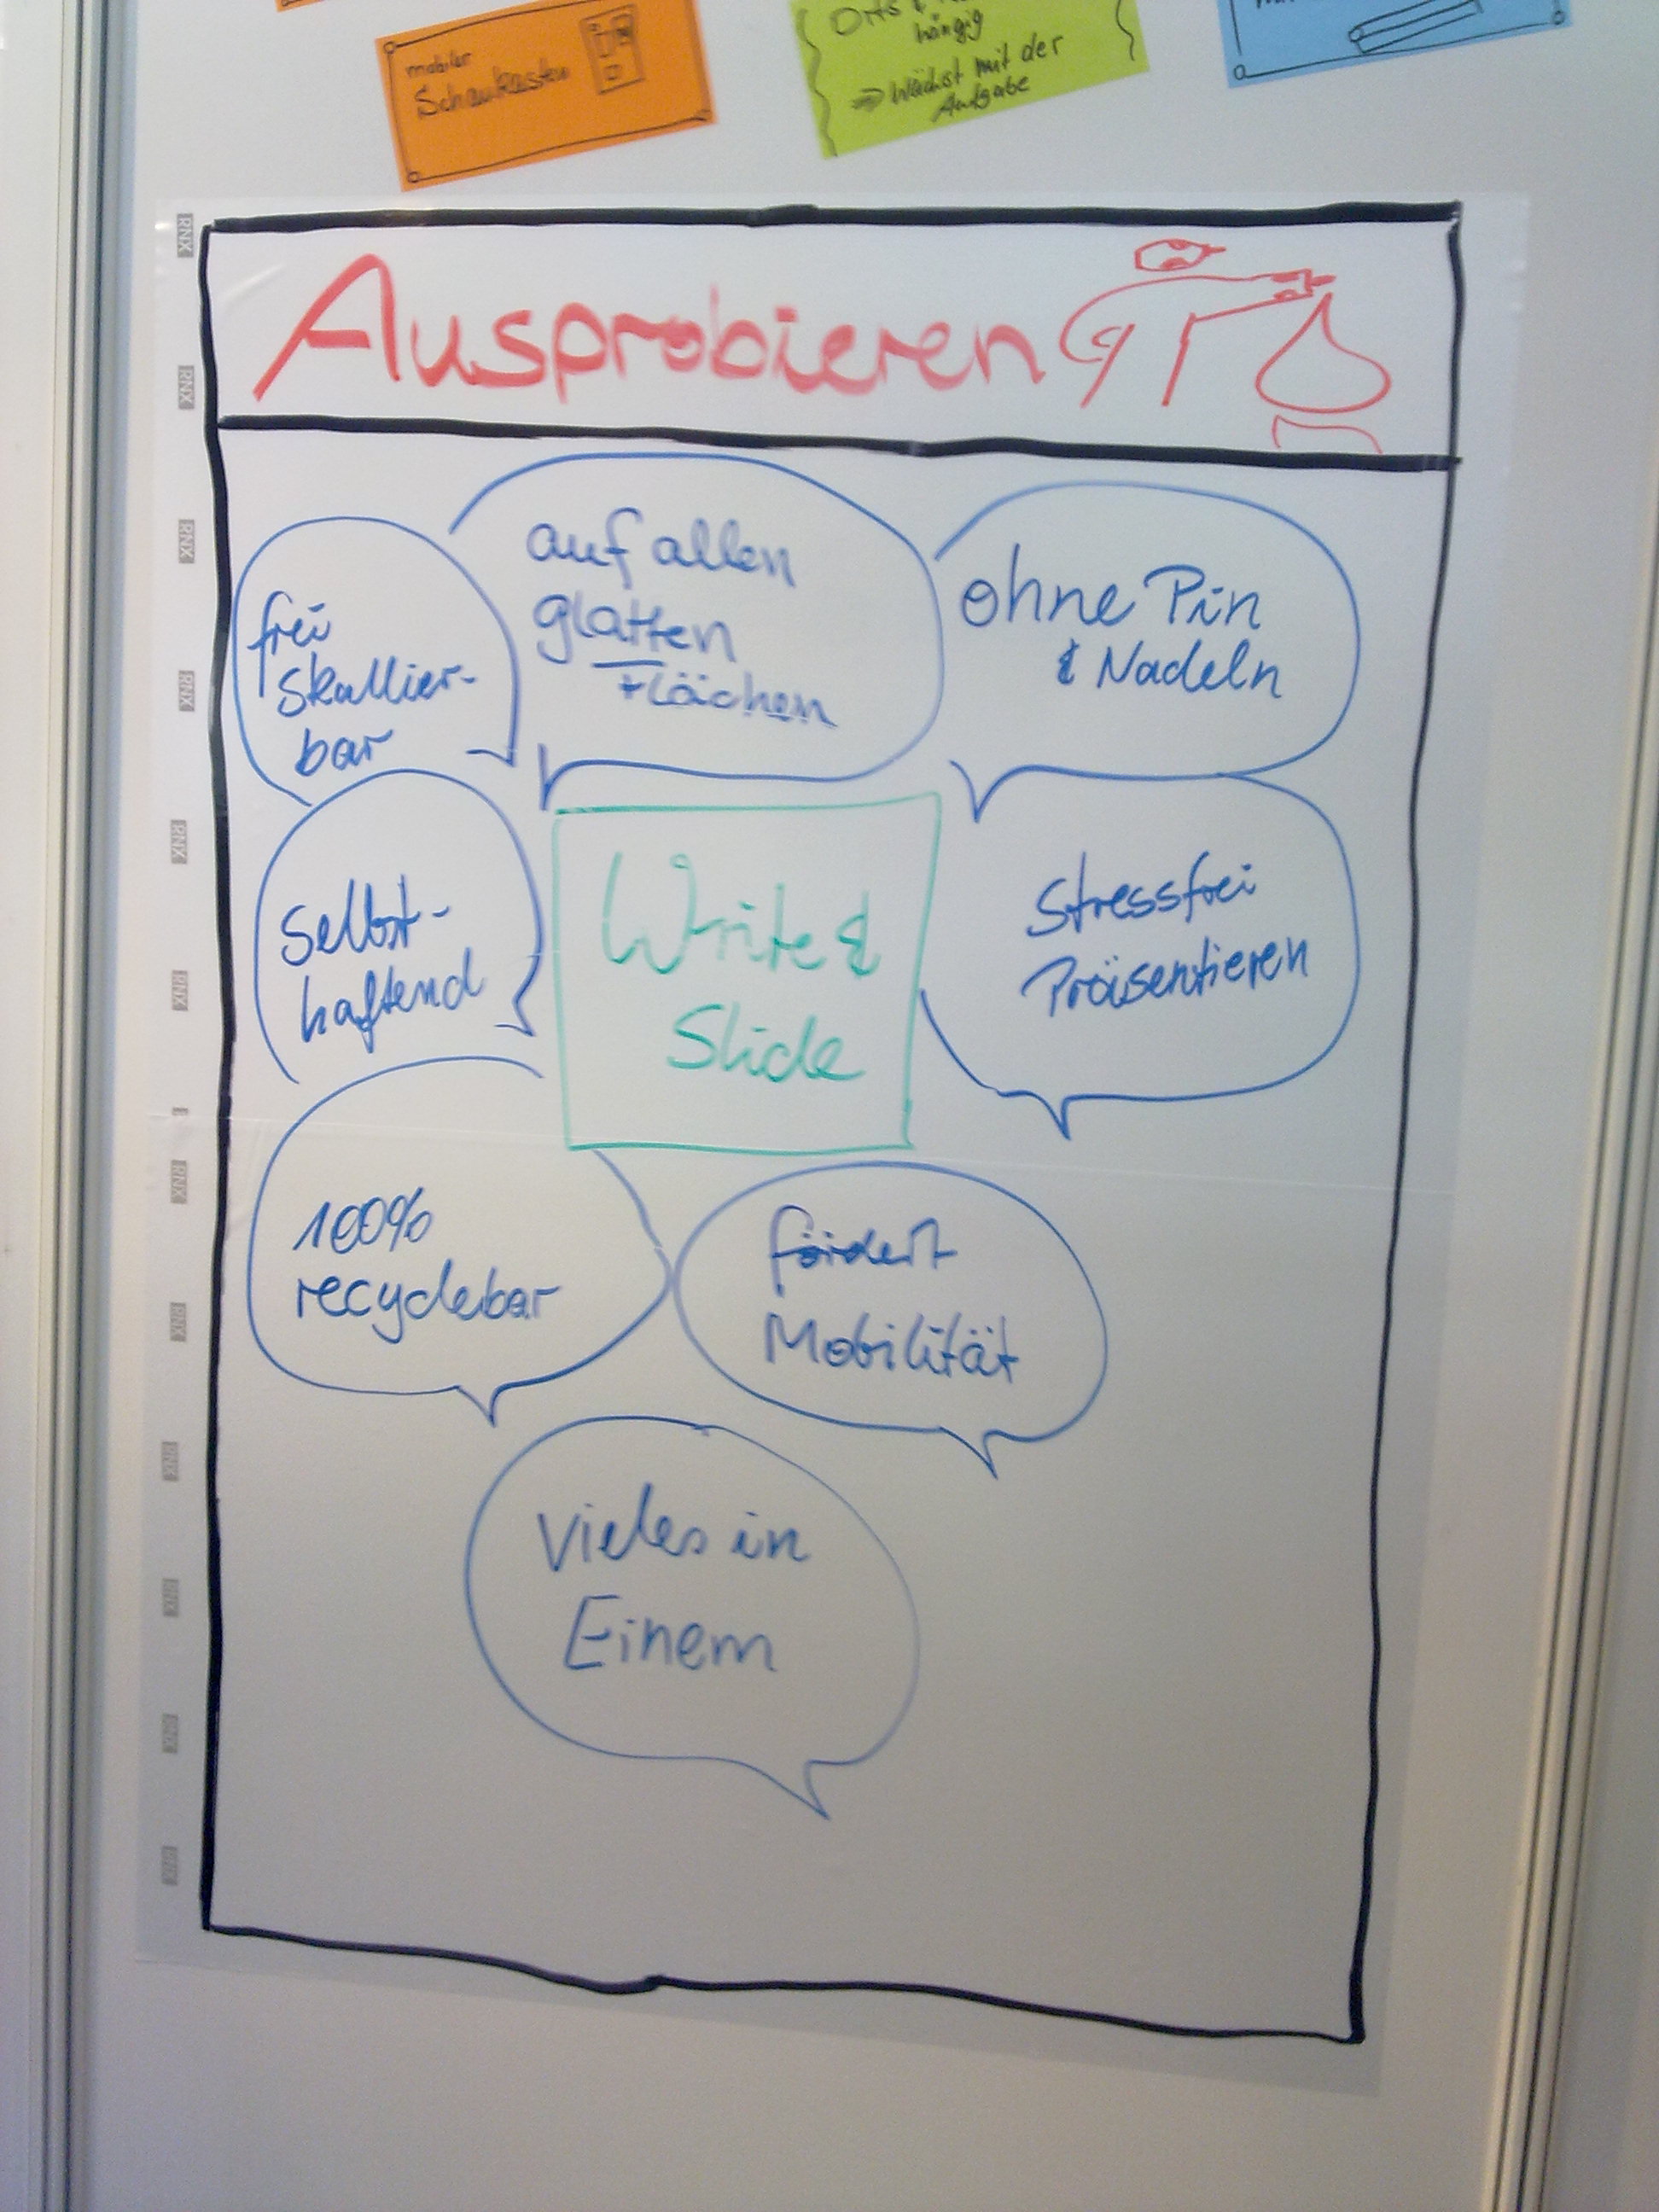 mobiler
Schaukasten
hängig
⇒ Wächst mit der
Aufgabe
Ausprobieren
frei
skallier-
bar
auf allen
glatten
Flächen
ohne Pin
& Nadeln
selbst-
haftend
Write &
Slide
Stressfrei
Präsentieren
100%
recyclebar
fördert
Mobilität
Vieles in
Einem
RNX
RNX
RNX
RNX
RNX
RNX
RNX
RNX
RNX
RNX
RNX
RNX